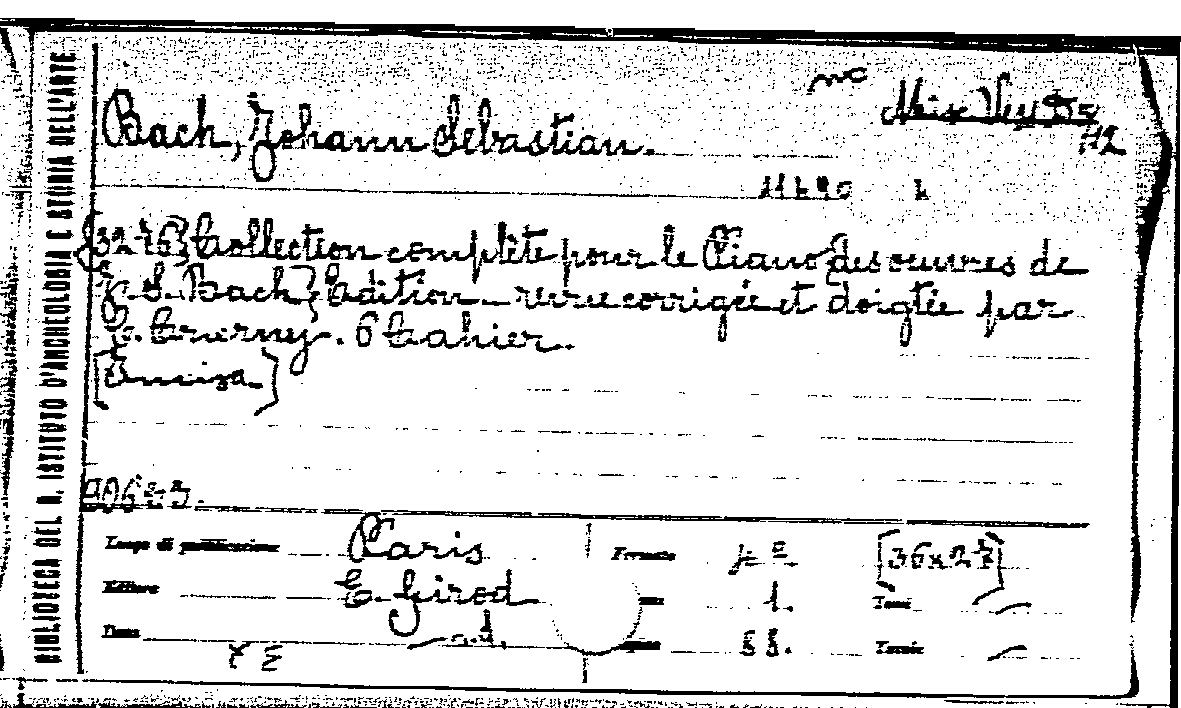 BIBLIOTECA DEL R. ISTITUTO D'ARCHEOLOGIA E STORIA DELL'ARTE
Bach, Johann Sebastian.
Collection complète pour le Piano des oeuvres de
J. S. Bach Edition revue corrigée et doigtée par
C. Czerny. 6 Cahier.
Luogo di pubblicazione Paris Formato f.º [36x27]
Editore E. Girod 1. Tomi —
Data s.d. 55. Tavole —